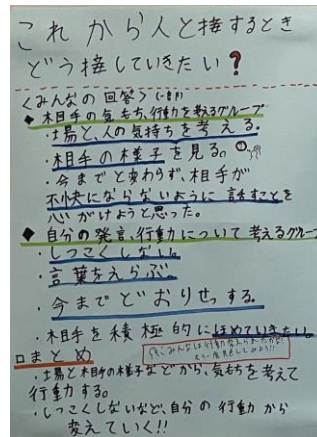 これから人と接するとき
どう接していきたい?
<みんなの回答>
◆相手の気もち,行動を考えるグループ
・場と、人の気持ちを考える。
・相手の様子を見る。
・今までと変わらず、相手が
不快にならないように話すことを
心がけようと思った。
◆自分の発言、行動について考えるグループ
・しつこくしない。
・言葉をえらぶ。
・今までどおりせっする。
・相手を積極的にほめていきたい。
□まとめ
・場と相手の様子などから、気もちを考えて
行動する。
・しつこくしないなど、自分の行動から
変えていく!!